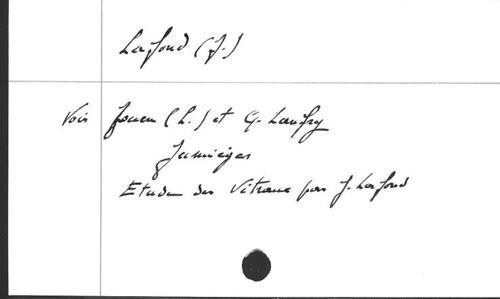 Lafond (J.)
Voir Jouen (L.) et G. Lanfry
Jumièges
Etude des Vitraux par J. Lafond